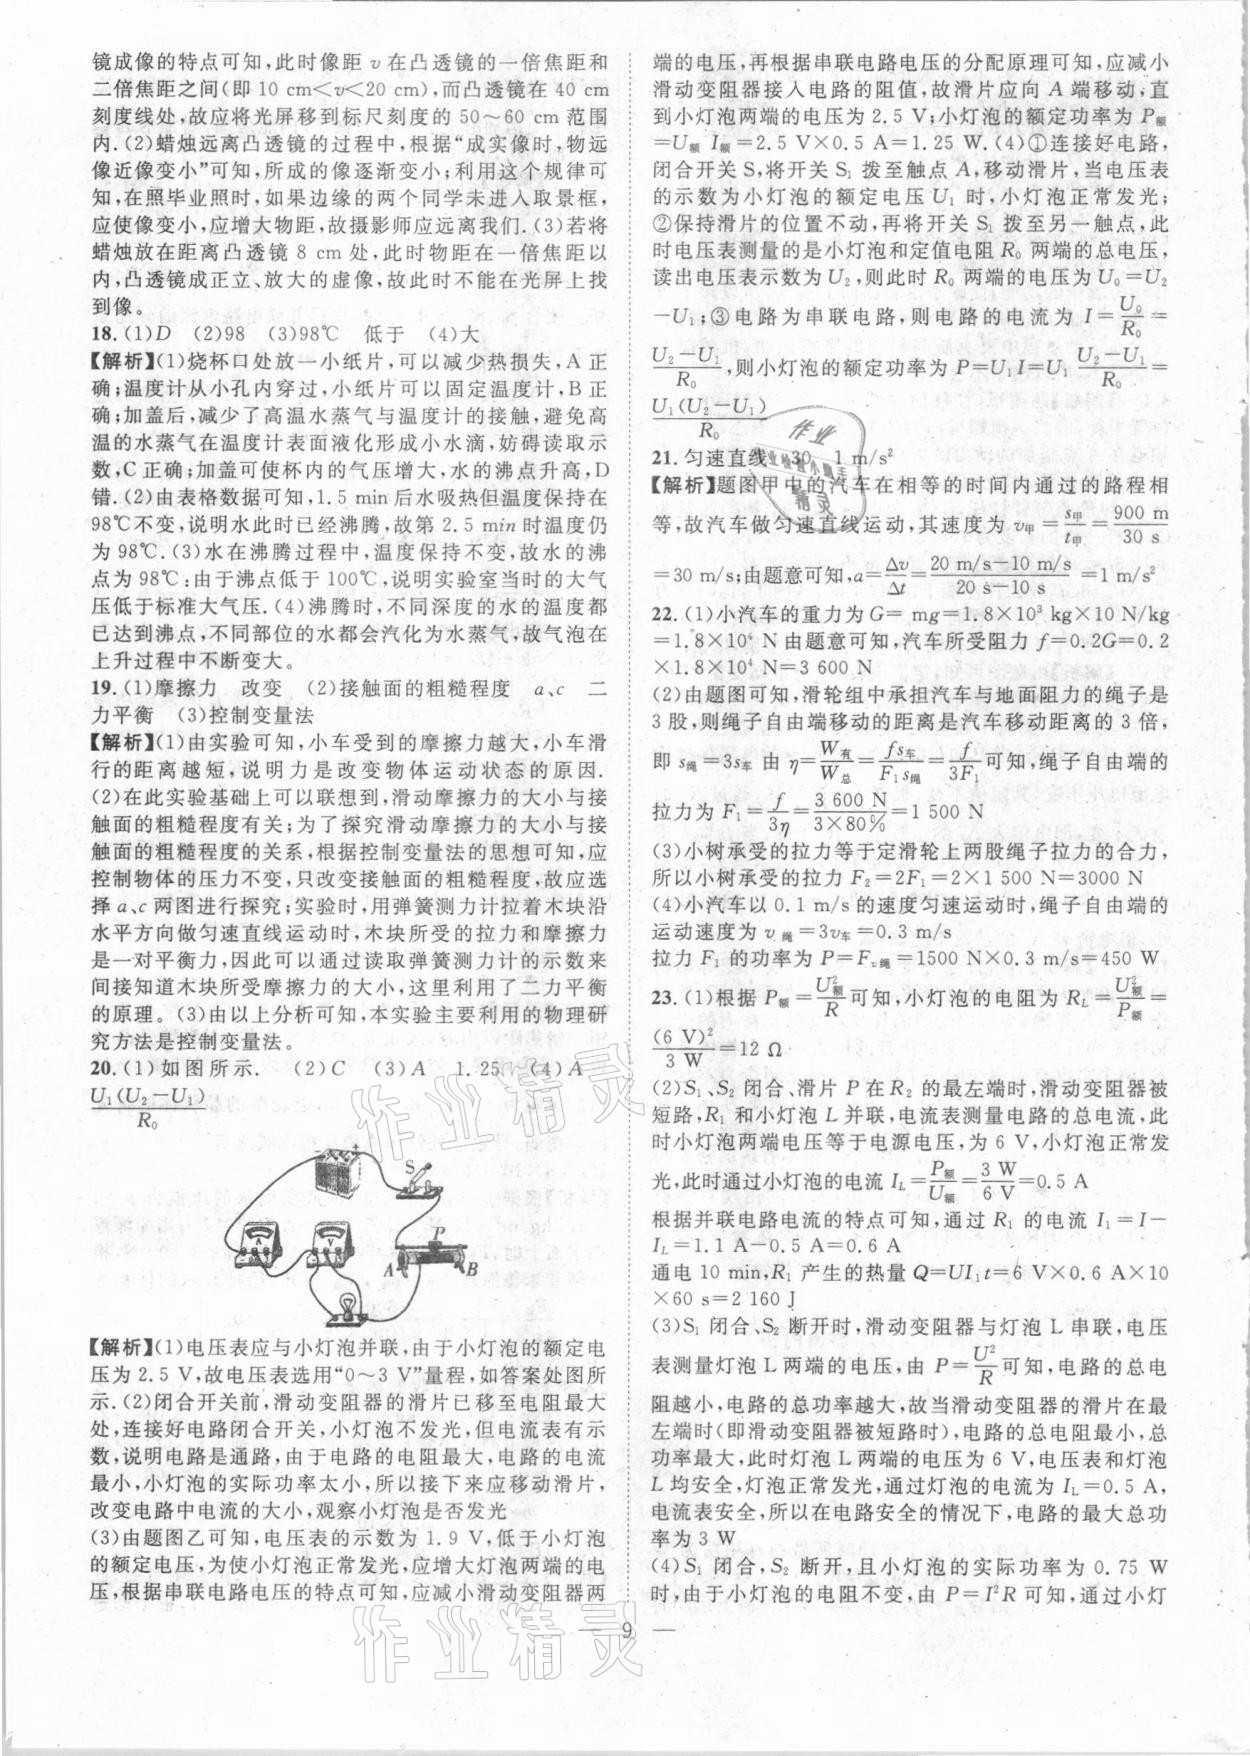 镜成像的特点可知，此时像距 v 在凸透镜的一倍焦距和
二倍焦距之间(即 10 cm<v<20 cm)，而凸透镜在 40 cm
刻度线处，故应将光屏移到标尺刻度的 50～60 cm 范围
内．(2)蜡烛远离凸透镜的过程中，根据“成实像时，物远
像近像变小”可知，所成的像逐渐变小；利用这个规律可
知，在照毕业照时，如果边缘的两个同学未进入取景框，
应使像变小，应增大物距，故摄影师应远离我们．(3)若将
蜡烛放在距离凸透镜 8 cm 处，此时物距在一倍焦距以
内，凸透镜成正立、放大的虚像，故此时不能在光屏上找
到像。
18.(1)D (2)98 (3)98℃ 低于 (4)大
【解析】(1)烧杯口处放一小纸片，可以减少热损失，A 正
确；温度计从小孔内穿过，小纸片可以固定温度计，B 正
确；加盖后，减少了高温水蒸气与温度计的接触，避免高
温的水蒸气在温度计表面液化形成小水滴，妨碍读取示
数，C 正确；加盖可使杯内的气压增大，水的沸点升高，D
错．(2)由表格数据可知，1.5 min 后水吸热但温度保持在
98℃不变，说明水此时已经沸腾，故第 2.5 min 时温度仍
为 98℃．(3)水在沸腾过程中，温度保持不变，故水的沸
点为 98℃；由于沸点低于 100℃，说明实验室当时的大气
压低于标准大气压．(4)沸腾时，不同深度的水的温度都
已达到沸点，不同部位的水都会汽化为水蒸气，故气泡在
上升过程中不断变大。
19.(1)摩擦力 改变 (2)接触面的粗糙程度 a、c 二
力平衡 (3)控制变量法
【解析】(1)由实验可知，小车受到的摩擦力越大，小车滑
行的距离越短，说明力是改变物体运动状态的原因．
(2)在此实验基础上可以联想到，滑动摩擦力的大小与接
触面的粗糙程度有关；为了探究滑动摩擦力的大小与接
触面的粗糙程度的关系，根据控制变量法的思想可知，应
控制物体的压力不变，只改变接触面的粗糙程度，故应选
择 a、c 两图进行探究；实验时，用弹簧测力计拉着木块沿
水平方向做匀速直线运动时，木块所受的拉力和摩擦力
是一对平衡力，因此可以通过读取弹簧测力计的示数来
间接知道木块所受摩擦力的大小，这里利用了二力平衡
的原理。(3)由以上分析可知，本实验主要利用的物理研
究方法是控制变量法。
20.(1)如图所示． (2)C (3)A 1.25 (4)A
U₁(U₂−U₁)/R₀
S
A
V
P
A
B
【解析】(1)电压表应与小灯泡并联，由于小灯泡的额定电
压为 2.5 V，故电压表选用“0～3 V”量程，如答案处图所
示．(2)闭合开关前，滑动变阻器的滑片已移至电阻最大
处，连接好电路闭合开关，小灯泡不发光，但电流表有示
数，说明电路是通路，由于电路的电阻最大，电路的电流
最小，小灯泡的实际功率太小，所以接下来应移动滑片，
改变电路中电流的大小，观察小灯泡是否发光
(3)由题图乙可知，电压表的示数为 1.9 V，低于小灯泡
的额定电压，为使小灯泡正常发光，应增大灯泡两端的电
压，根据串联电路电压的特点可知，应减小滑动变阻器两
端的电压，再根据串联电路电压的分配原理可知，应减小
滑动变阻器接入电路的阻值，故滑片应向 A 端移动，直
到小灯泡两端的电压为 2.5 V；小灯泡的额定功率为 P额
=U额 I额=2.5 V×0.5 A=1.25 W．(4)①连接好电路，
闭合开关 S，将开关 S₁ 拨至触点 A，移动滑片，当电压表
的示数为小灯泡的额定电压 U₁ 时，小灯泡正常发光；
②保持滑片的位置不动，再将开关 S₁ 拨至另一触点，此
时电压表测量的是小灯泡和定值电阻 R₀ 两端的总电压，
读出电压表示数为 U₂，则此时 R₀ 两端的电压为 U₀=U₂
−U₁；③电路为串联电路，则电路的电流为 I=U₀/R₀=
(U₂−U₁)/R₀，则小灯泡的额定功率为 P=U₁I=U₁ (U₂−U₁)/R₀=
U₁(U₂−U₁)/R₀
21.匀速直线 30 1 m/s²
【解析】题图甲中的汽车在相等的时间内通过的路程相
等，故汽车做匀速直线运动，其速度为 v甲=s甲/t甲=900 m/30 s
=30 m/s；由题意可知，a=Δv/Δt=(20 m/s−10 m/s)/(20 s−10 s)=1 m/s²
22.(1)小汽车的重力为 G=mg=1.8×10³ kg×10 N/kg
=1.8×10⁴ N 由题意可知，汽车所受阻力 f=0.2G=0.2
×1.8×10⁴ N=3 600 N
(2)由题图可知，滑轮组中承担汽车与地面阻力的绳子是
3 股，则绳子自由端移动的距离是汽车移动距离的 3 倍，
即 s绳=3s车 由 η=W有/W总=fs车/F₁s绳=f/3F₁可知，绳子自由端的
拉力为 F₁=f/3η=3 600 N/(3×80%)=1 500 N
(3)小树承受的拉力等于定滑轮上两股绳子拉力的合力，
所以小树承受的拉力 F₂=2F₁=2×1 500 N=3000 N
(4)小汽车以 0.1 m/s 的速度匀速运动时，绳子自由端的
运动速度为 v绳=3v车=0.3 m/s
拉力 F₁ 的功率为 P=Fv绳=1500 N×0.3 m/s=450 W
23.(1)根据 P额=U额²/R可知，小灯泡的电阻为 R_L=U额²/P额=
(6 V)²/3 W=12 Ω
(2)S₁、S₂ 闭合、滑片 P 在 R₂ 的最左端时，滑动变阻器被
短路，R₁ 和小灯泡 L 并联，电流表测量电路的总电流，此
时小灯泡两端电压等于电源电压，为 6 V，小灯泡正常发
光，此时通过小灯泡的电流 I_L=P额/U额=3 W/6 V=0.5 A
根据并联电路电流的特点可知，通过 R₁ 的电流 I₁=I−
I_L=1.1 A−0.5 A=0.6 A
通电 10 min，R₁ 产生的热量 Q=UI₁t=6 V×0.6 A×10
×60 s=2 160 J
(3)S₁ 闭合、S₂ 断开时，滑动变阻器与灯泡 L 串联，电压
表测量灯泡 L 两端的电压，由 P=U²/R可知，电路的总电
阻越小，电路的总功率越大，故当滑动变阻器的滑片在最
左端时(即滑动变阻器被短路时)，电路的总电阻最小，总
功率最大，此时灯泡 L 两端的电压为 6 V，电压表和灯泡
L 均安全，灯泡正常发光，通过灯泡的电流为 I_L=0.5 A，
电流表安全，所以在电路安全的情况下，电路的最大总功
率为 3 W
(4)S₁ 闭合，S₂ 断开，且小灯泡的实际功率为 0.75 W
时，由于小灯泡的电阻不变，由 P=I²R 可知，通过小灯
作业精灵
作业精灵
— 9 —